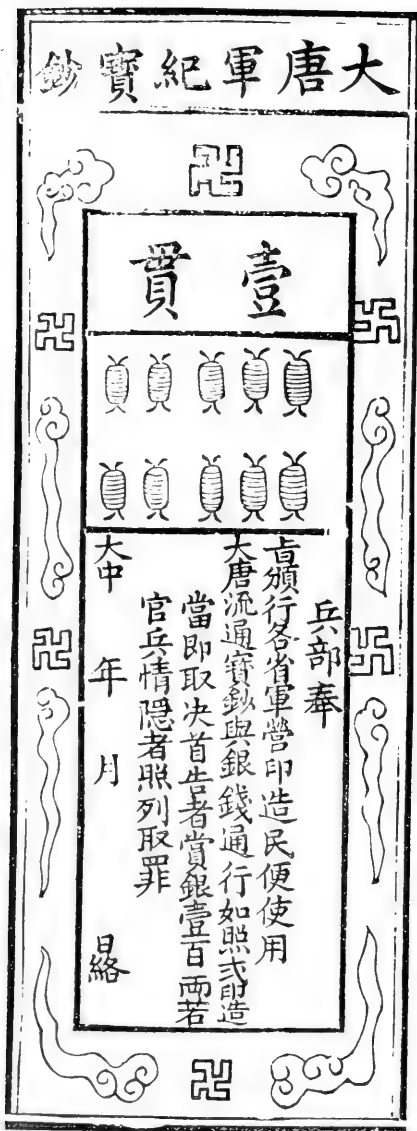 大唐軍紀寶鈔
壹貫
兵部奉
旨頒行各省軍營印造民便使用
大唐流通寶鈔與銀錢通行如照式印造
當即取决首告者賞銀壹百兩若
官兵情隠者照列取罪
大中　年　月　日